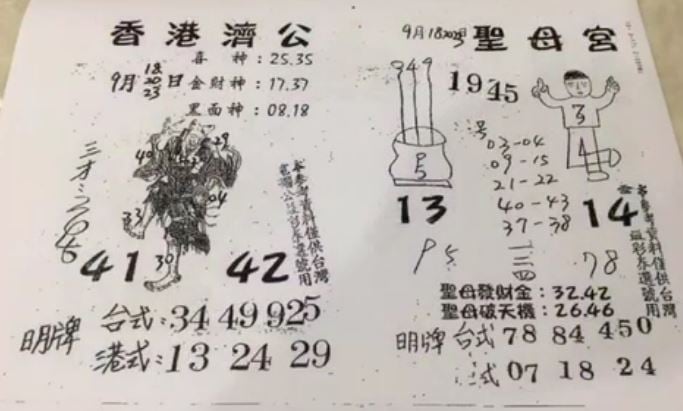 香港濟公
喜 神：25.35
9月18 20 23日 金財神：17.37
黑面神：08.18
40
29
04
33
30
41 42
本參考資料僅供台灣
明牌 台式：34 49 925
港式：13 24 29
9月18
聖母宮
949
19 45
3
號
03-04
09-15
21-22
40-43
37-38
P
5
13
14
本參考資料僅供台灣
益彩券選號用
P5
一三四
78
聖母發財金：32.42
聖母破天機：26.46
明牌 台式 78 84 450
式 07 18 24